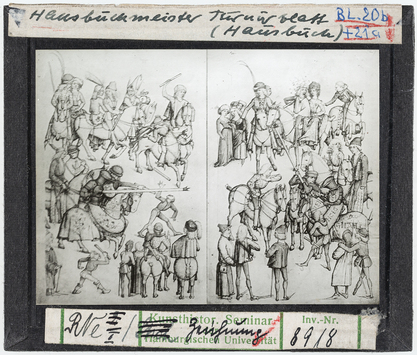 Hausbuchmeister Turnierblatt BL. 20b
(Hausbuch) +21a
RNe I/I / Zeichnung
Kunsthistor. Seminar
Hamburgischen Universität
Inv.-Nr.
8918